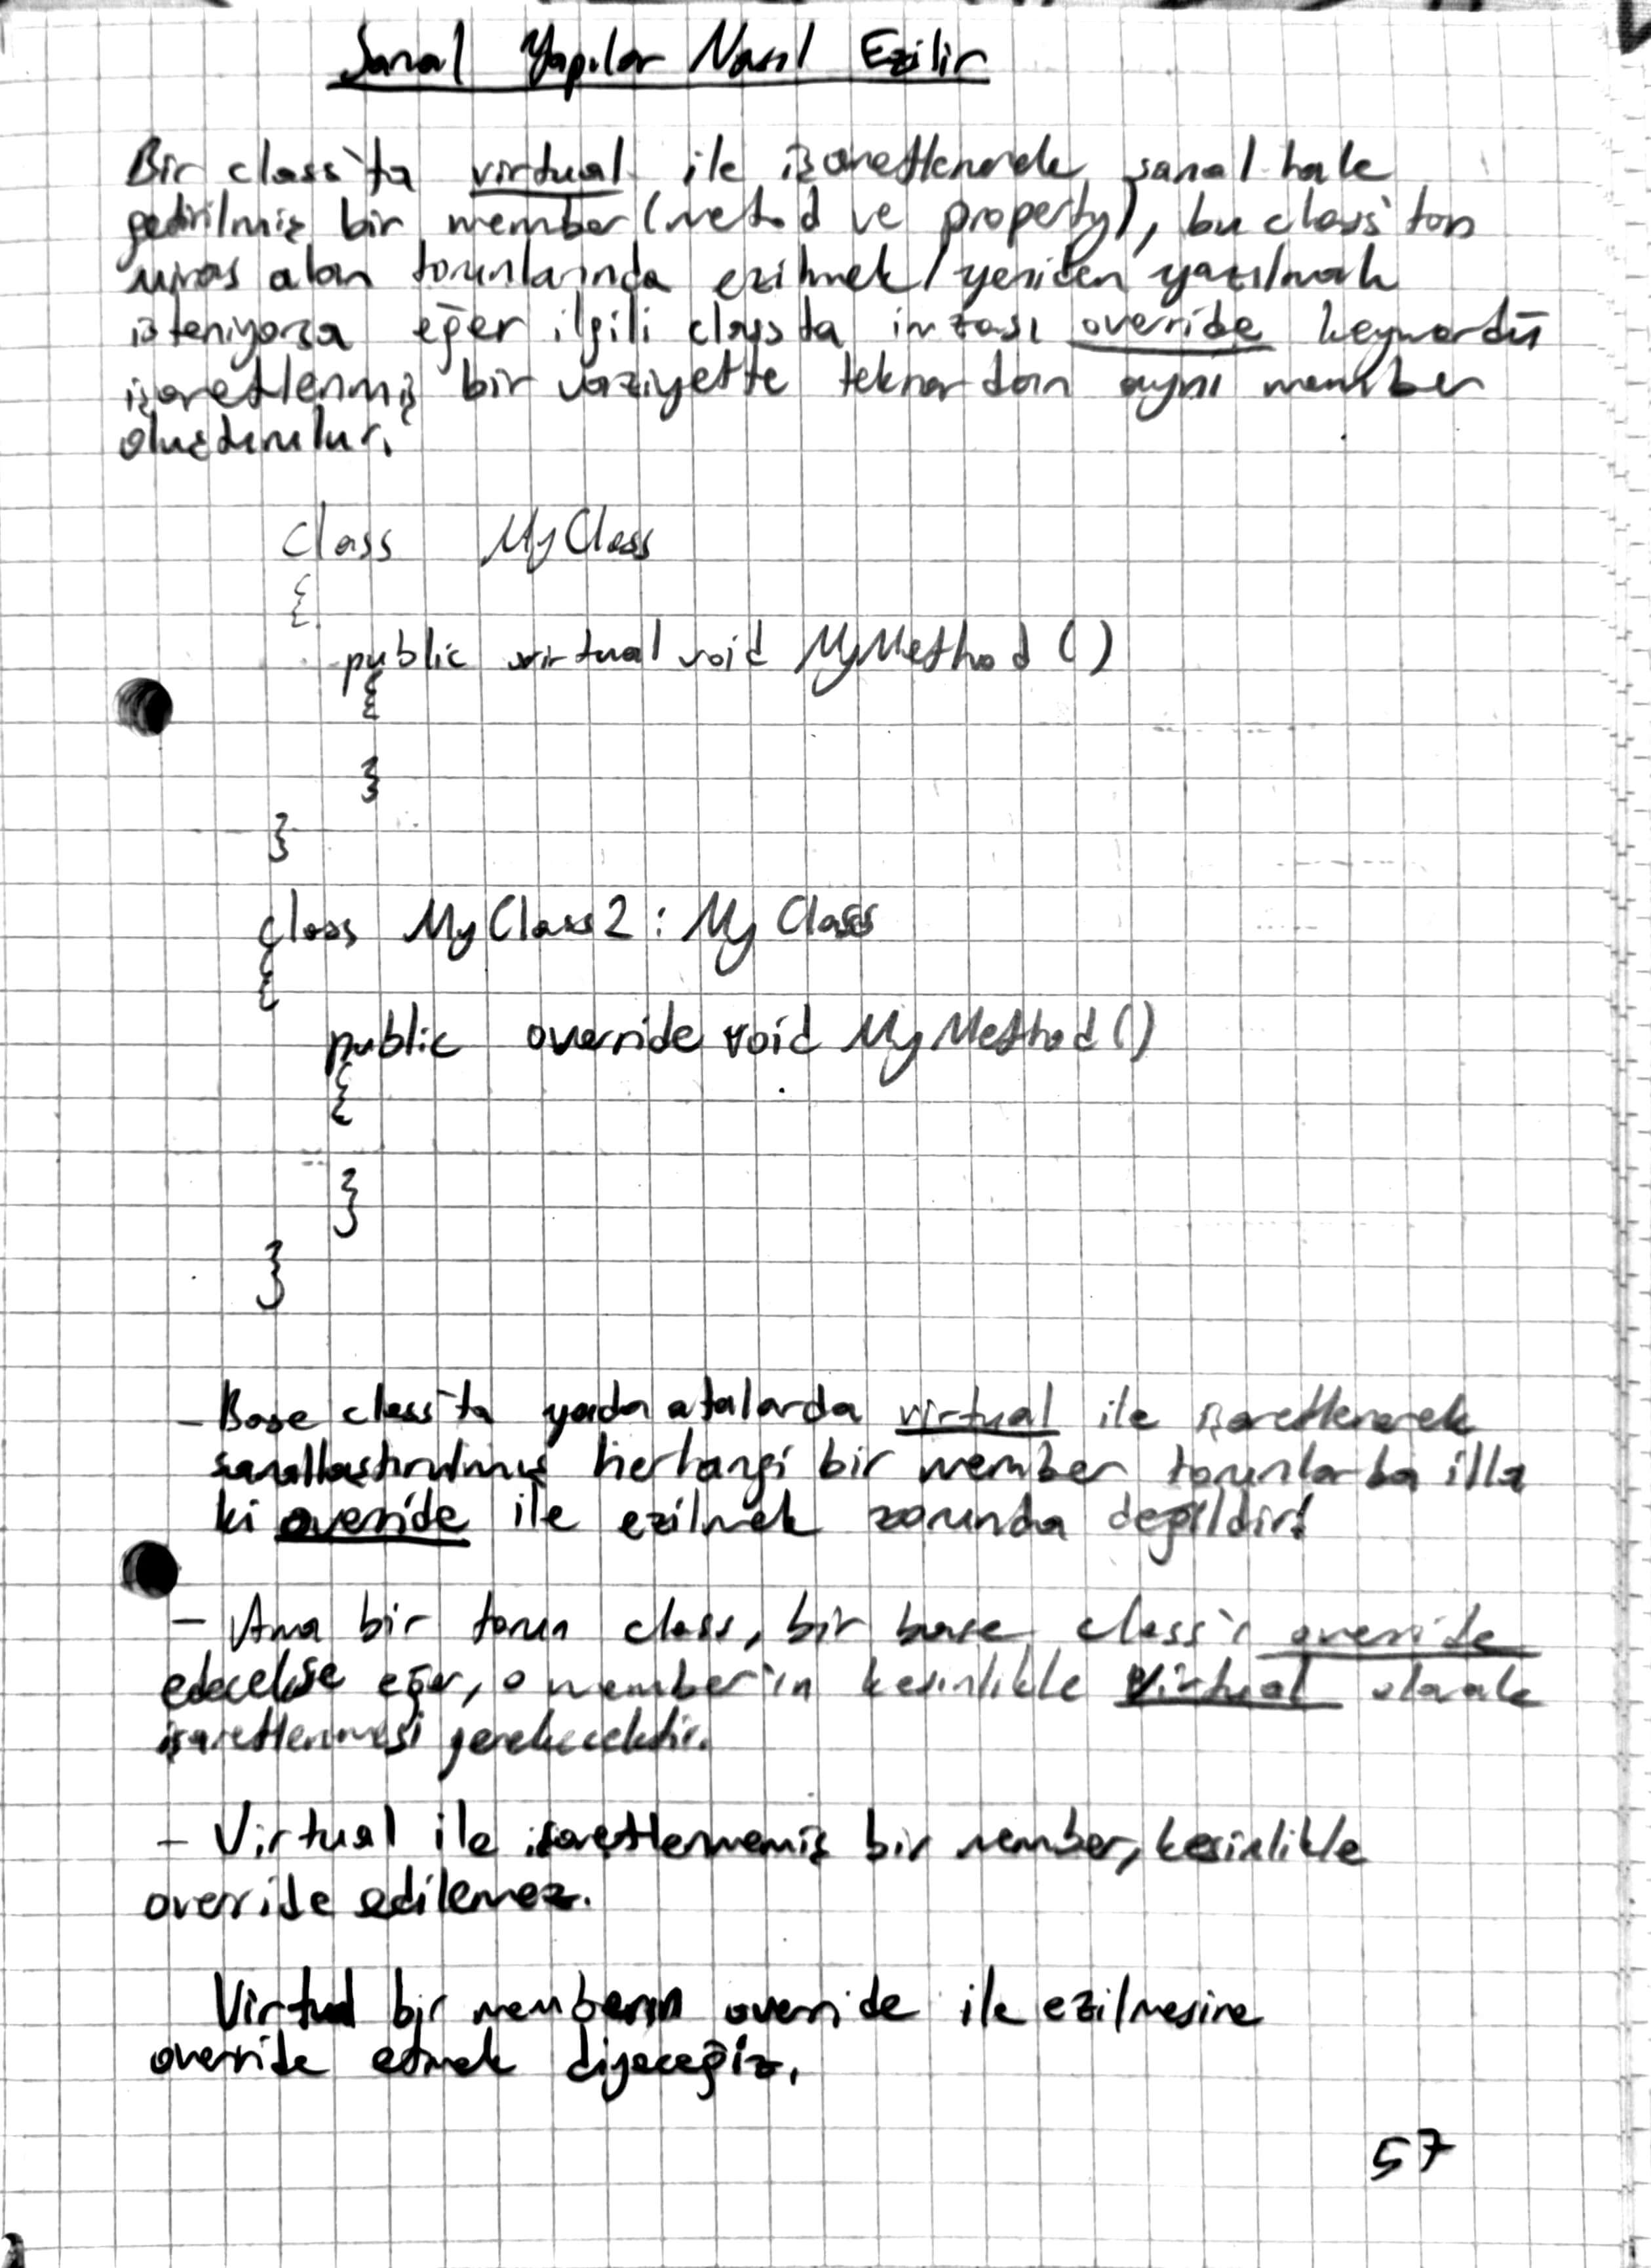 Sanal Yapılar Nasıl Ezilir
Bir class'ta virtual ile işaretlenerek sanal hale
getirilmiş bir member (metod ve property), bu class'tan
miras alan torunlarında ezilmek/yeniden yazılmak
isteniyorsa eğer ilgili classta imzası override keywordü
işaretlenmiş bir vaziyette tekrardan aynı member
oluşturulur.
class MyClass
{
public virtual void MyMethod ()
{
}
}
class MyClass2 : MyClass
{
public override void MyMethod ()
{
}
}
- Base class'ta yada atalarda virtual ile işaretlenerek
sanallaştırılmış herhangi bir member torunlarda illa
ki override ile ezilmek zorunda değildir!
- Ama bir torun class, bir base class'ı override
edecekse eğer, o member'ın kesinlikle virtual olarak
işaretlenmesi gerekecektir.
- Virtual ile işaretlenmemiş bir member, kesinlikle
override edilemez.
Virtual bir memberın override ile ezilmesine
override etmek diyeceğiz.
57